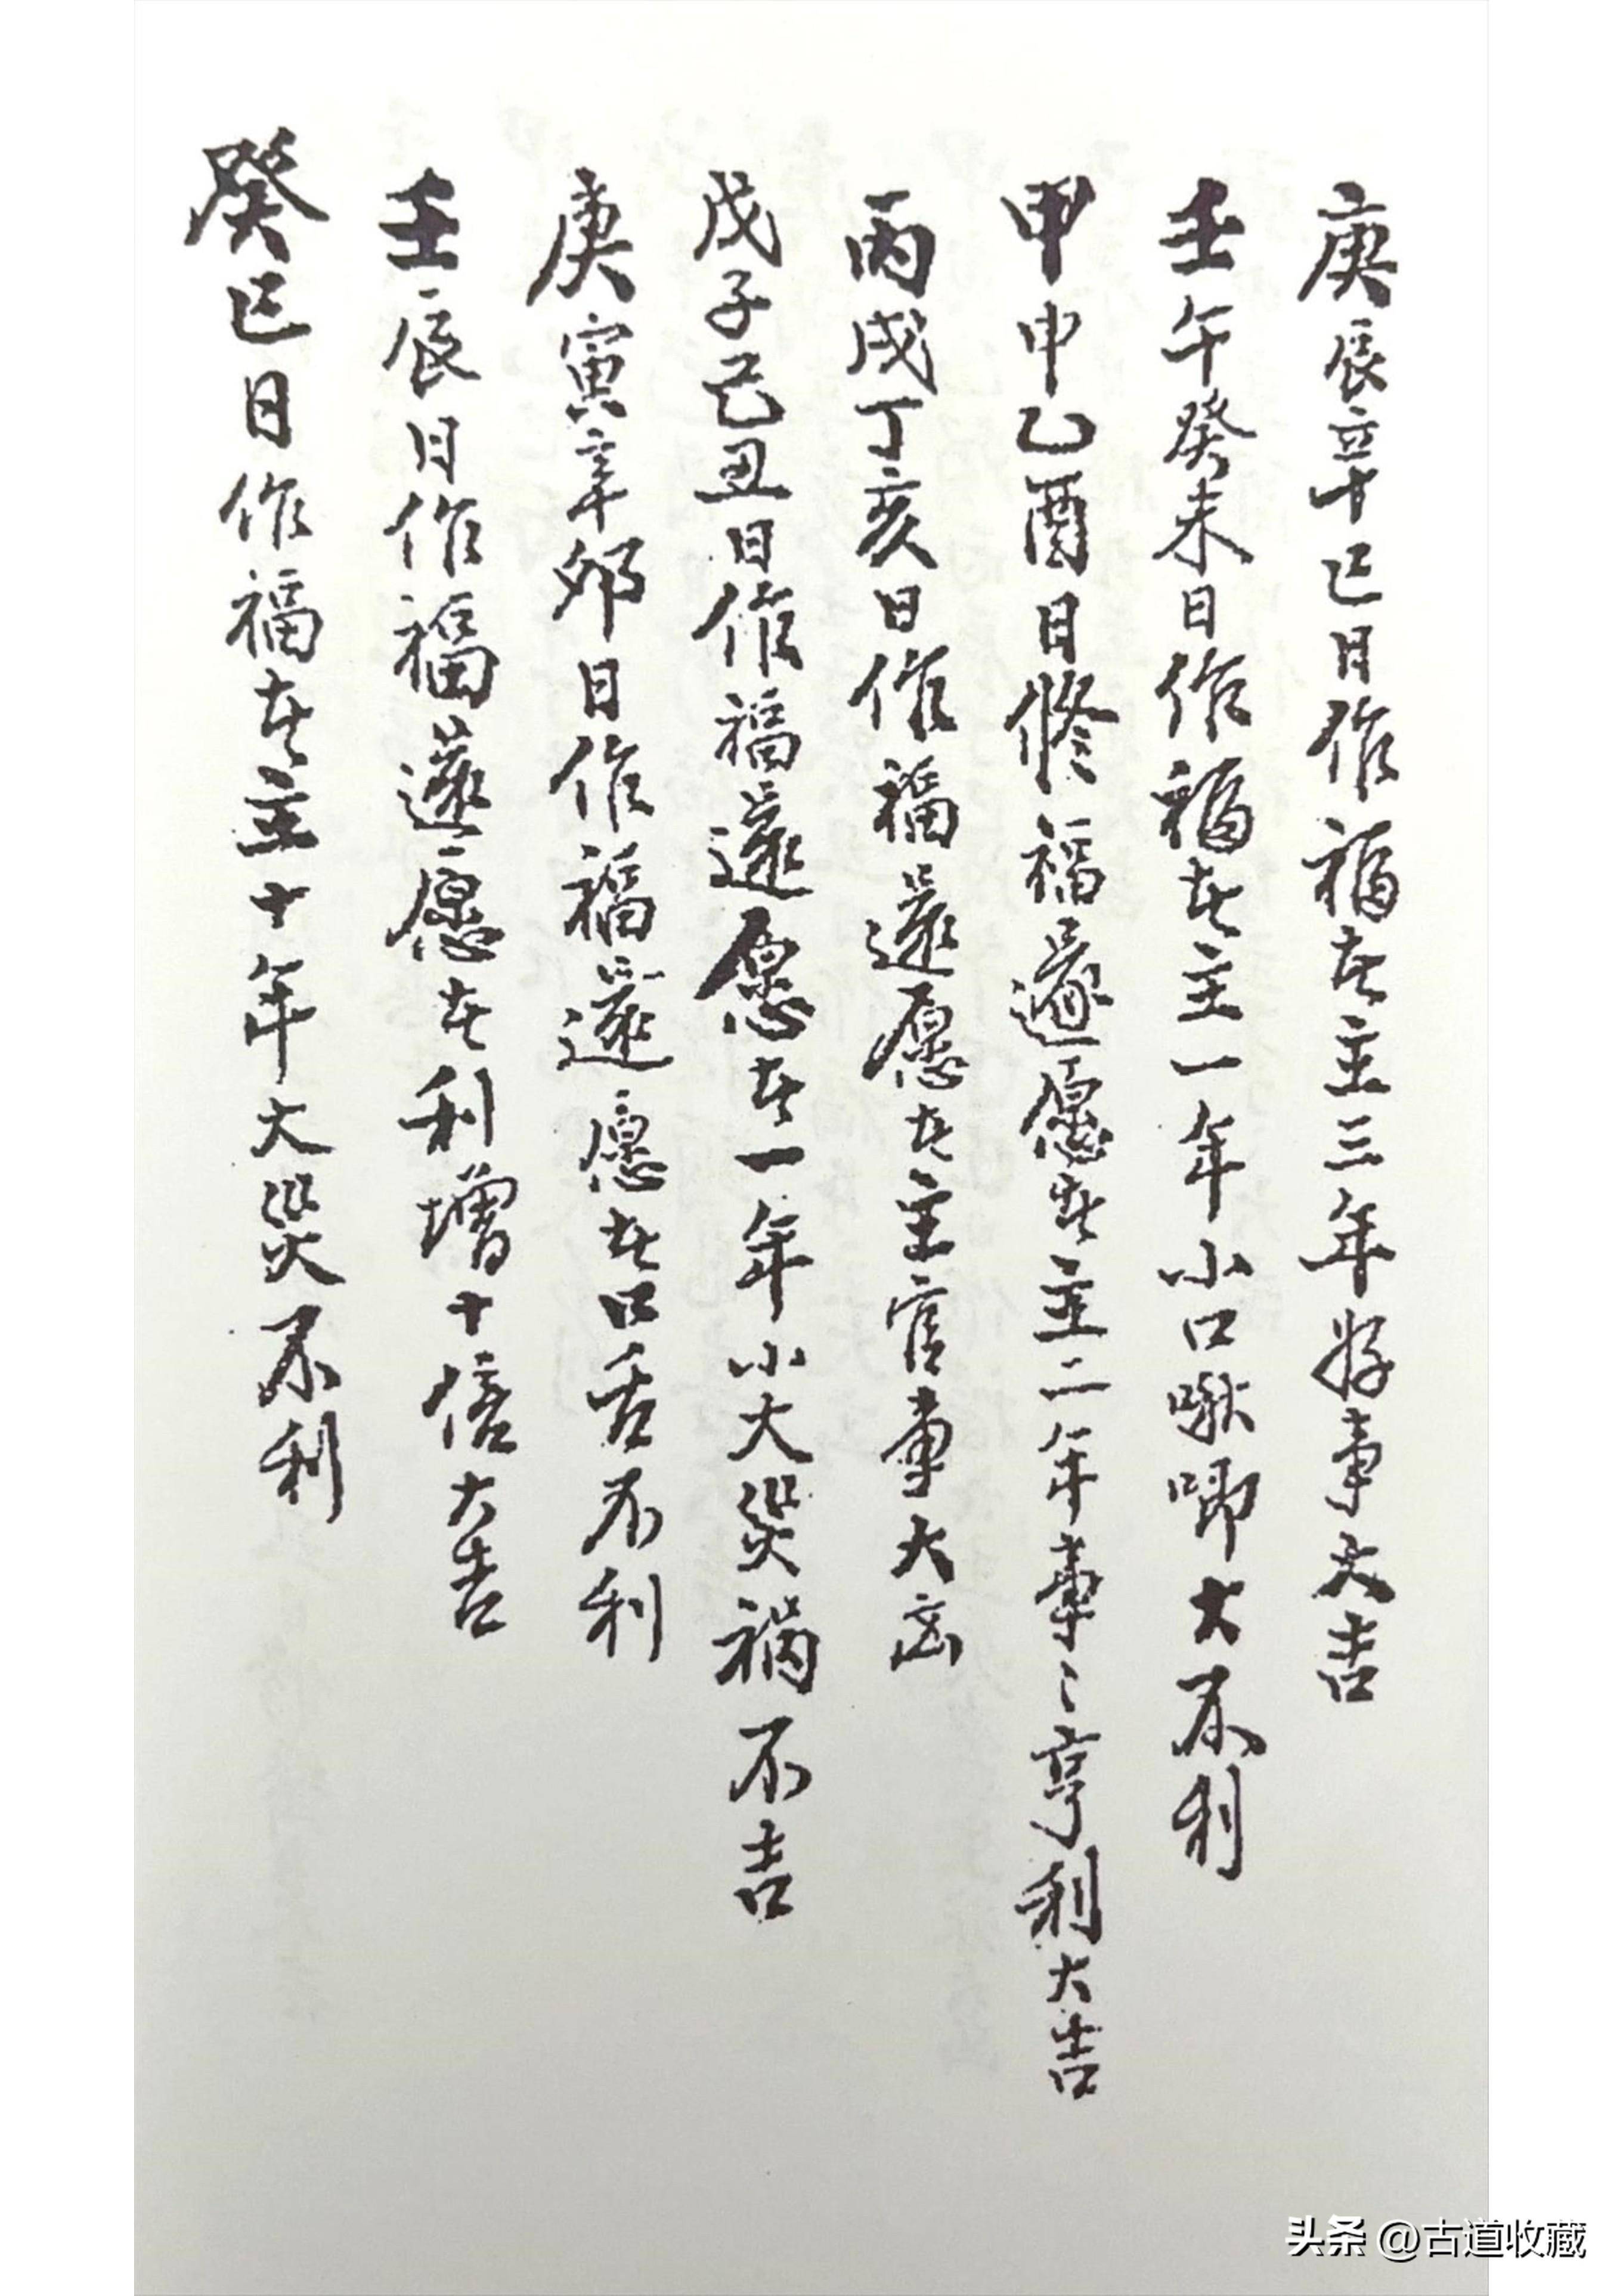 庚辰辛巳日作福者主三年好事大吉
壬午癸未日作福者主一年小口啾唧大不利
甲申乙酉日修福还愿者主二年事〻亨利大吉
丙戌丁亥日作福还愿者主官事大凶
戊子己丑日作福还愿者一年小大災祸不吉
庚寅辛卯日作福还愿者口舌不利
壬辰日作福还愿者利增十倍大吉
癸巳日作福者主十年大災不利
头条 @古道收藏